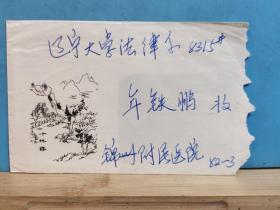 辽宁大学法律系 8315#
年铁鹏 收
锦州附属医院 82-3